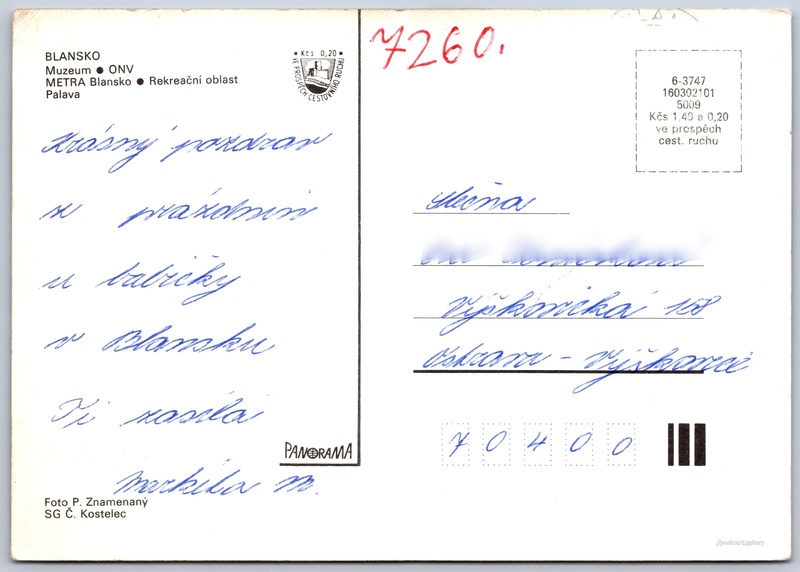 BLANSKO
Muzeum ● ONV
METRA Blansko ● Rekreační oblast
Palava
★ Kčs 0,20 ★
VE PROSPĚCH CESTOVNÍHO RUCHU
Krásný pozdrav
z prázdnin
u babičky
v Blansku
Ti zasílá
M.
PANORAMA
Foto P. Znamenaný
SG Č. Kostelec
7260.
6-3747
160302101
5009
Kčs 1,40 a 0,20
ve prospěch
cest. ruchu
Slečna
Výškovická 158
Ostrava - Výškovice
70400
@postcard.gallery